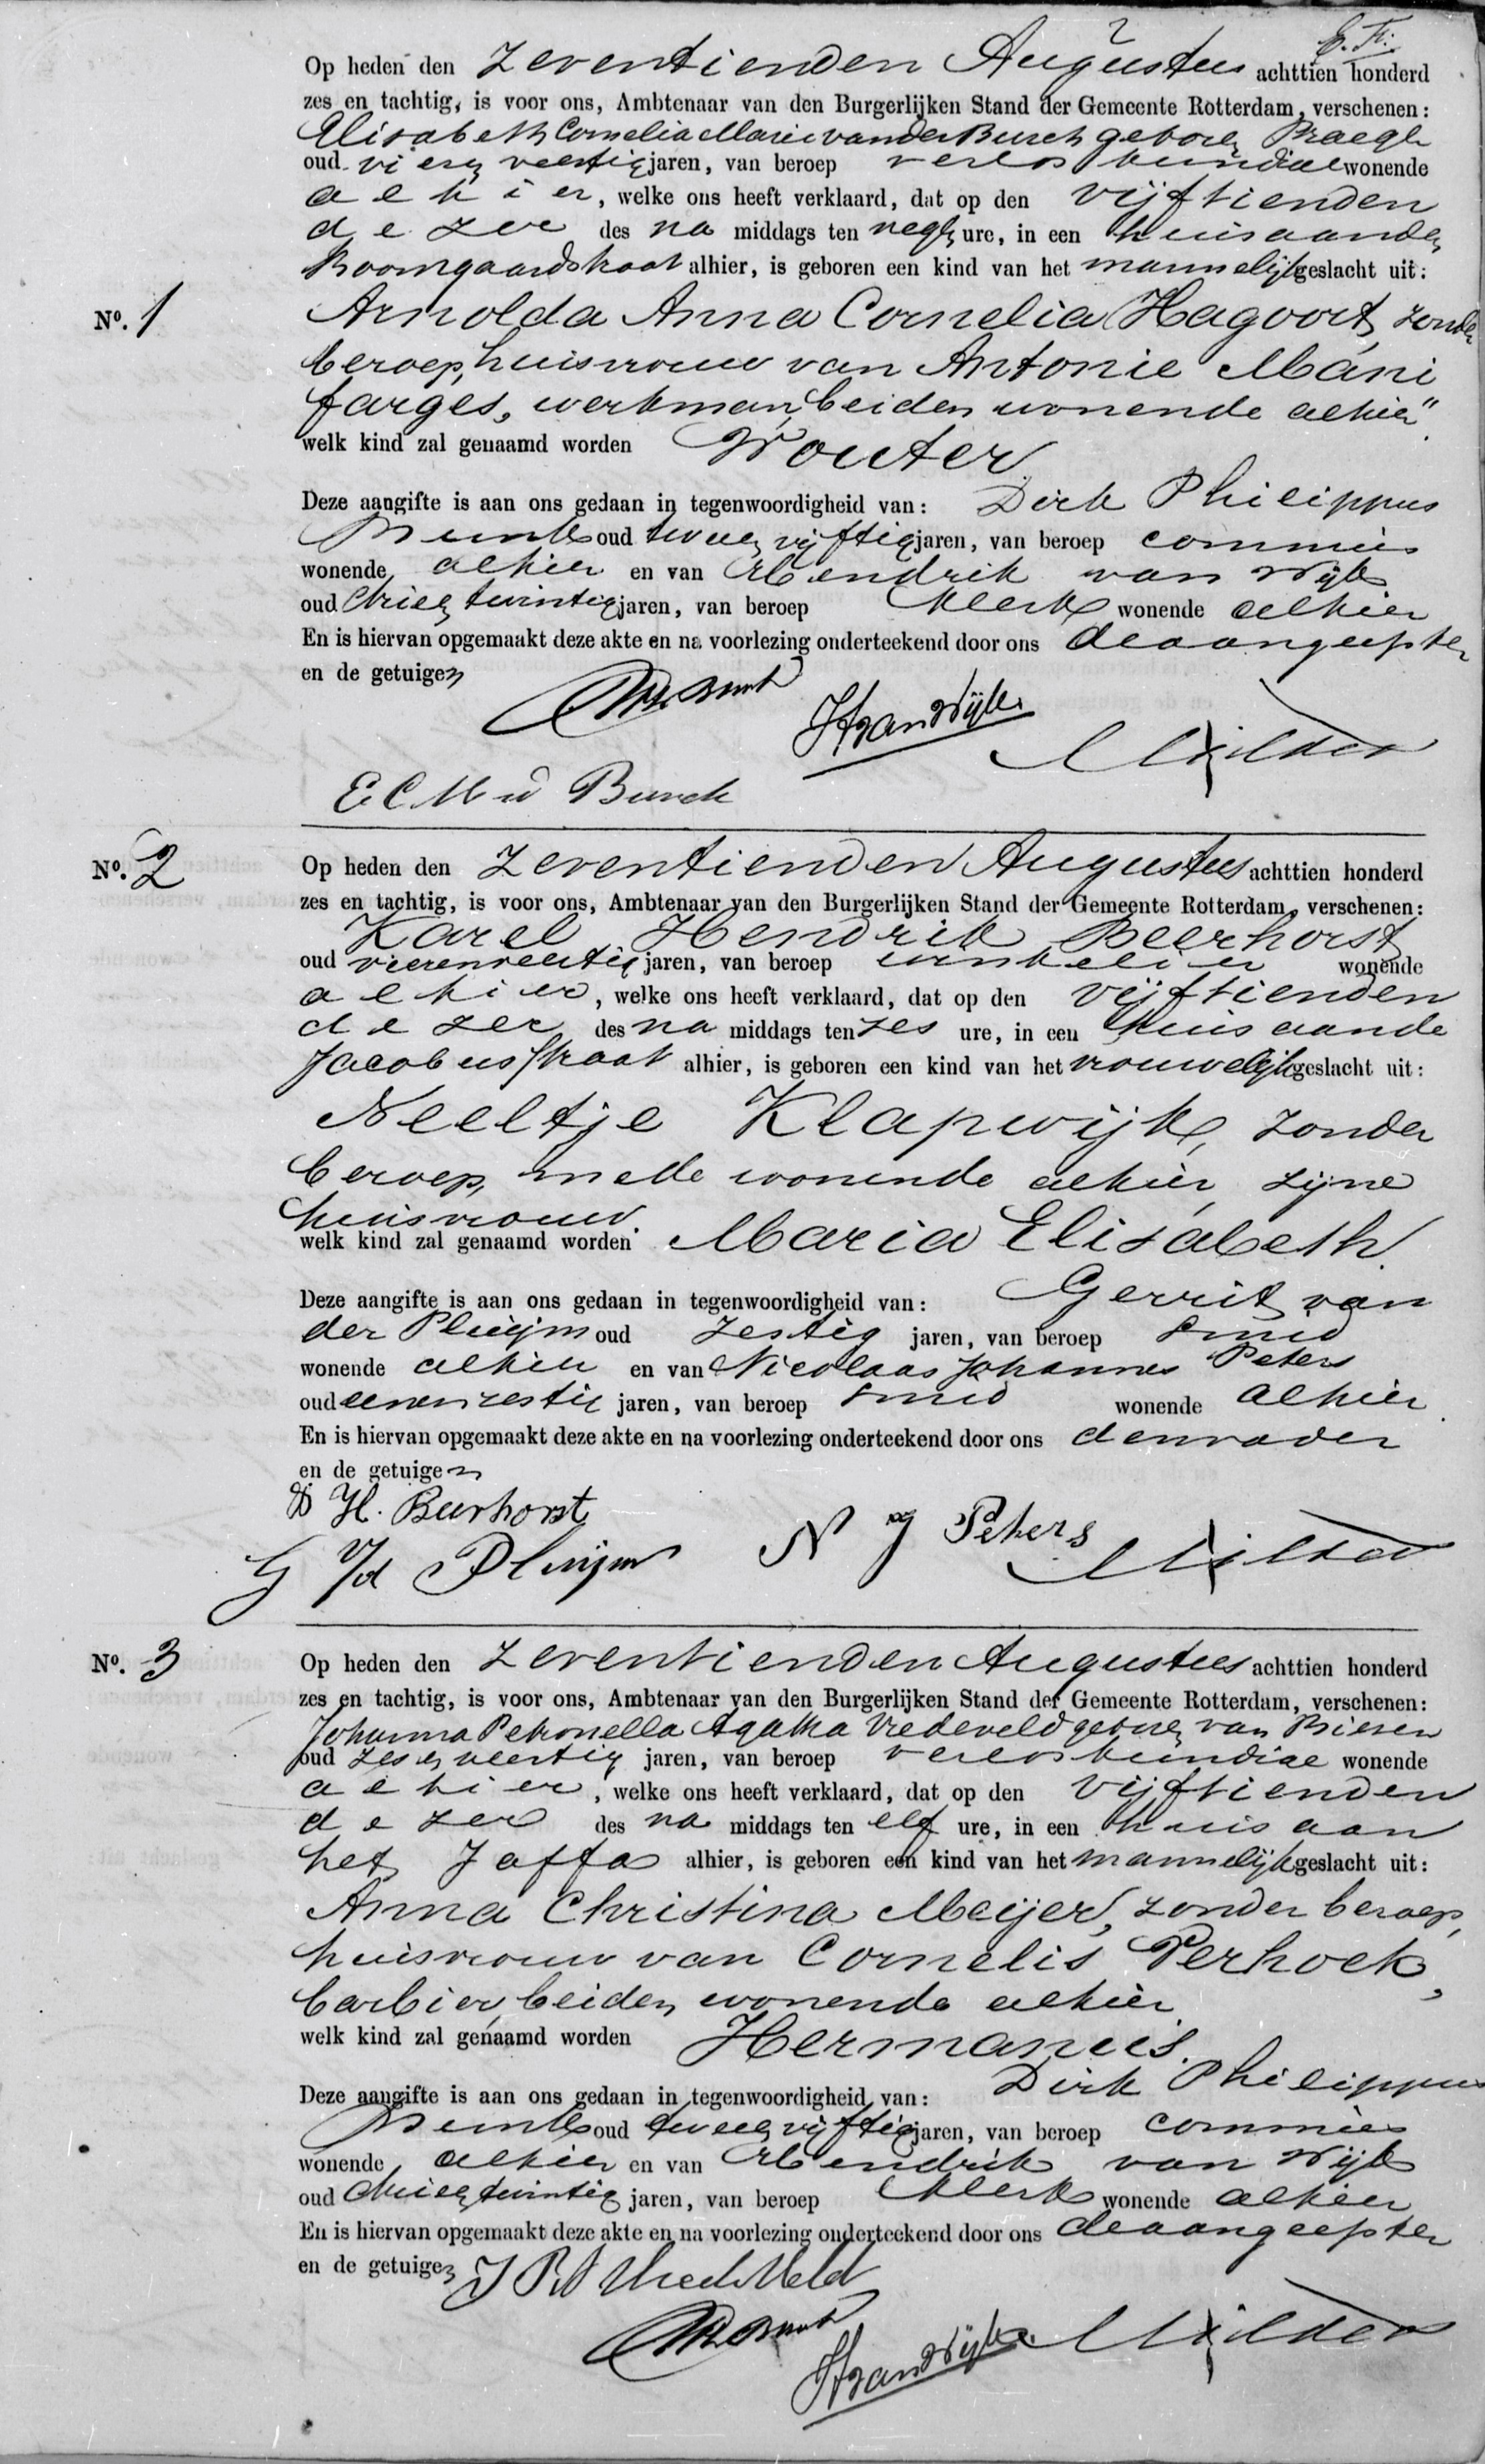 E. Fr.
Op heden den Zeventienden Augustus achttien honderd
zes en tachtig, is voor ons, Ambtenaar van den Burgerlijken Stand der Gemeente Rotterdam, verschenen:
Elisabeth Cornelia Marie van der Burch geboren
oud vier en veertig jaren, van beroep verloskundige wonende
alhier, welke ons heeft verklaard, dat op den vijftienden
dezer des na middags ten negen ure, in een huis aan den
Boomgaardstraat alhier, is geboren een kind van het mannelijk geslacht uit:
No. 1
Arnolda Anna Cornelia Hagoort, zonder
beroep, huisvrouw van Antonie Mani
farges, werkman, beiden wonende alhier
welk kind zal genaamd worden Wouter
Deze aangifte is aan ons gedaan in tegenwoordigheid van: Dirk Philippus
oud twee en vijftig jaren, van beroep commies
wonende alhier en van Hendrik van Wijk
oud drie en twintig jaren, van beroep klerk wonende alhier
En is hiervan opgemaakt deze akte en na voorlezing onderteekend door ons de aangeefster
en de getuigen
HvanWijk.
E C M v d Burch
No. 2
Op heden den Zeventienden Augustus achttien honderd
zes en tachtig, is voor ons, Ambtenaar van den Burgerlijken Stand der Gemeente Rotterdam, verschenen:
Karel Hendrik Beerhorst
oud vierenveertig jaren, van beroep winkelier wonende
alhier, welke ons heeft verklaard, dat op den vijftienden
dezer des na middags ten zes ure, in een huis aan de
Jacobusstraat alhier, is geboren een kind van het vrouwelijk geslacht uit:
Neeltje Klapwijk, zonder
beroep, mede wonende alhier, zijne
huisvrouw.
welk kind zal genaamd worden Maria Elisabeth.
Deze aangifte is aan ons gedaan in tegenwoordigheid van: Gerrit van
der Pluijm oud zestig jaren, van beroep smid
wonende alhier en van Nicolaas Johannes Peters
oud eenenzestig jaren, van beroep smid wonende alhier
En is hiervan opgemaakt deze akte en na voorlezing onderteekend door ons den vader
en de getuigen
H. Beerhorst
N J Peters
G v/d Pluijm
No. 3
Op heden den Zeventienden Augustus achttien honderd
zes en tachtig, is voor ons, Ambtenaar van den Burgerlijken Stand der Gemeente Rotterdam, verschenen:
Johanna Petronella Agatha Vredeveld geboren van Bienen
oud zes en veertig jaren, van beroep verloskundige wonende
alhier, welke ons heeft verklaard, dat op den vijftienden
dezer des na middags ten elf ure, in een huis aan
het Jaffa alhier, is geboren een kind van het mannelijk geslacht uit:
Anna Christina Meijer, zonder beroep,
huisvrouw van Cornelis Perhoek,
barbier, beiden wonende alhier
welk kind zal genaamd worden Hermanus.
Deze aangifte is aan ons gedaan in tegenwoordigheid van: Dirk Philippus
oud twee en vijftig jaren, van beroep commies
wonende alhier en van Hendrik van Wijk
oud drie en twintig jaren, van beroep klerk wonende alhier
En is hiervan opgemaakt deze akte en na voorlezing onderteekend door ons de aangeefster
en de getuigen
HvanWijk.